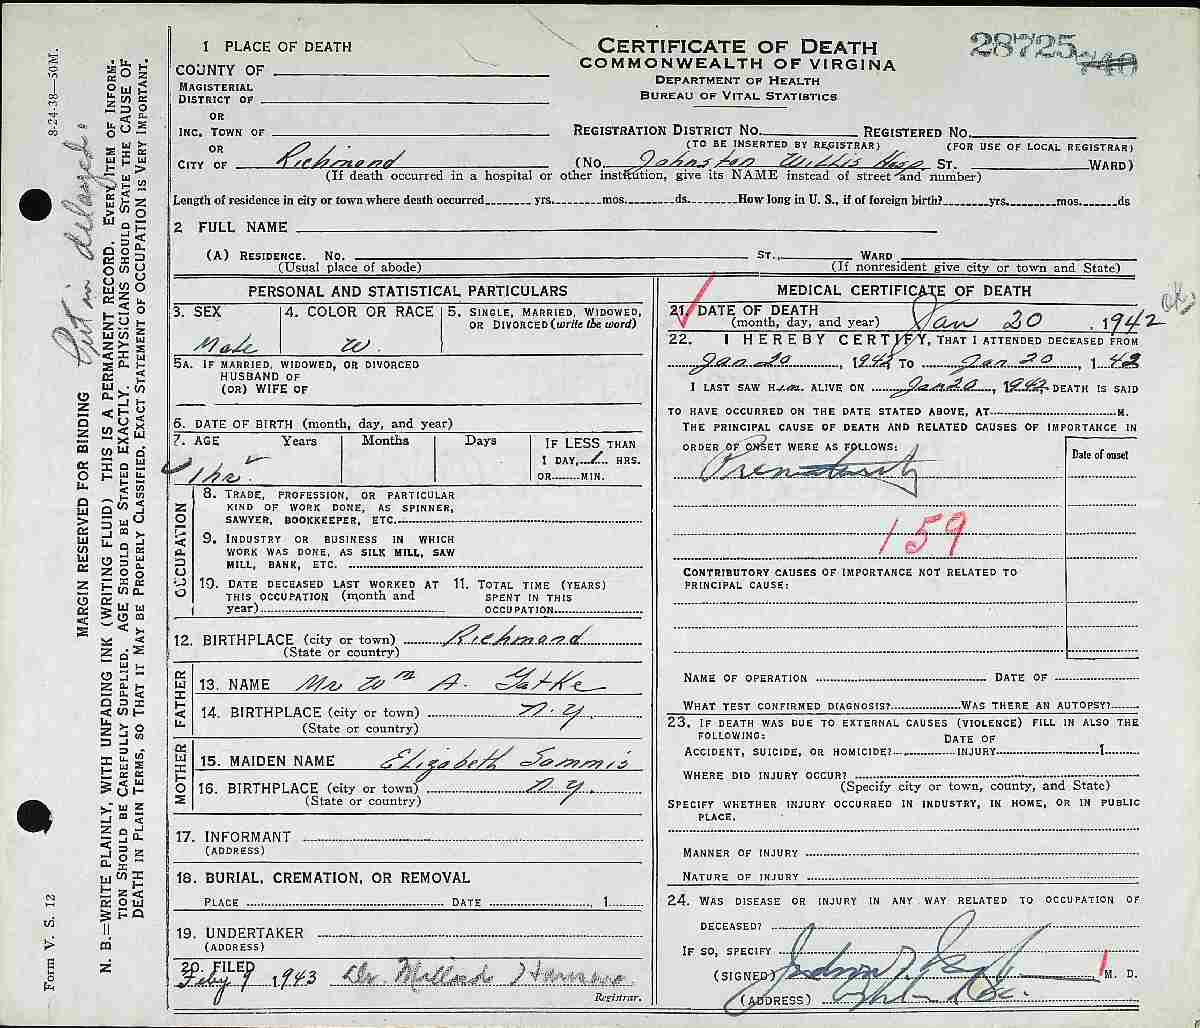 8-24-38—50M.
Put in delayed.
MARGIN RESERVED FOR BINDING
N. B.—WRITE PLAINLY, WITH UNFADING INK (WRITING FLUID) THIS IS A PERMANENT RECORD. EVERY ITEM OF INFORM-
TION SHOULD BE CAREFULLY SUPPLIED. AGE SHOULD BE STATED EXACTLY. PHYSICIANS SHOULD STATE THE CAUSE OF
DEATH IN PLAIN TERMS, SO THAT IT MAY BE PROPERLY CLASSIFIED. EXACT STATEMENT OF OCCUPATION IS VERY IMPORTANT.
Form V. S. 12
CERTIFICATE OF DEATH
COMMONWEALTH OF VIRGINA
DEPARTMENT OF HEALTH
BUREAU OF VITAL STATISTICS
28725 740
1 PLACE OF DEATH
COUNTY OF
MAGISTERIAL
DISTRICT OF
OR
INC. TOWN OF
OR
CITY OF Richmond
REGISTRATION DISTRICT NO. REGISTERED NO.
(TO BE INSERTED BY REGISTRAR) (FOR USE OF LOCAL REGISTRAR)
(No. Johnston Willis Hosp ST. WARD)
(If death occurred in a hospital or other institution, give its NAME instead of street and number)
Length of residence in city or town where death occurred yrs. mos. ds. How long in U. S., if of foreign birth? yrs. mos. ds
2 FULL NAME
(A) RESIDENCE. NO. ST., WARD
(Usual place of abode) (If nonresident give city or town and State)
PERSONAL AND STATISTICAL PARTICULARS
3. SEX
Male
4. COLOR OR RACE
W.
5. SINGLE, MARRIED, WIDOWED,
OR DIVORCED (write the word)
5A. IF MARRIED, WIDOWED, OR DIVORCED
HUSBAND OF
(OR) WIFE OF
6. DATE OF BIRTH (month, day, and year)
7. AGE Years Months Days IF LESS THAN
1 DAY, 1 HRS.
OR MIN.
1 hr
OCCUPATION
8. TRADE, PROFESSION, OR PARTICULAR
KIND OF WORK DONE, AS SPINNER,
SAWYER, BOOKKEEPER, ETC.
9. INDUSTRY OR BUSINESS IN WHICH
WORK WAS DONE, AS SILK MILL, SAW
MILL, BANK, ETC.
19. DATE DECEASED LAST WORKED AT
THIS OCCUPATION (month and
year)
11. TOTAL TIME (YEARS)
SPENT IN THIS
OCCUPATION
12. BIRTHPLACE (city or town) Richmond
(State or country)
FATHER
13. NAME Mr Wm A. Gatke
14. BIRTHPLACE (city or town) N.Y.
(State or country)
MOTHER
15. MAIDEN NAME Elizabeth Sammis
16. BIRTHPLACE (city or town) N.Y.
(State or country)
17. INFORMANT
(ADDRESS)
18. BURIAL, CREMATION, OR REMOVAL
PLACE DATE 1
19. UNDERTAKER
(ADDRESS)
20. FILED
Feby 9, 1943 Dr. Millard
Registrar.
MEDICAL CERTIFICATE OF DEATH
21. DATE OF DEATH
(month, day, and year) Jan 20, 1942
OK
22. I HEREBY CERTIFY, THAT I ATTENDED DECEASED FROM
Jan 20, 1942 TO Jan 20, 1 42
I LAST SAW Him ALIVE ON Jan 20, 1942, DEATH IS SAID
TO HAVE OCCURRED ON THE DATE STATED ABOVE, AT M.
THE PRINCIPAL CAUSE OF DEATH AND RELATED CAUSES OF IMPORTANCE IN
ORDER OF ONSET WERE AS FOLLOWS:
Date of onset
Prematurity
159
CONTRIBUTORY CAUSES OF IMPORTANCE NOT RELATED TO
PRINCIPAL CAUSE:
NAME OF OPERATION DATE OF
WHAT TEST CONFIRMED DIAGNOSIS? WAS THERE AN AUTOPSY?
23. IF DEATH WAS DUE TO EXTERNAL CAUSES (VIOLENCE) FILL IN ALSO THE
FOLLOWING: DATE OF
ACCIDENT, SUICIDE, OR HOMICIDE? INJURY 1
WHERE DID INJURY OCCUR?
(Specify city or town, county, and State)
SPECIFY WHETHER INJURY OCCURRED IN INDUSTRY, IN HOME, OR IN PUBLIC
PLACE.
MANNER OF INJURY
NATURE OF INJURY
24. WAS DISEASE OR INJURY IN ANY WAY RELATED TO OCCUPATION OF
DECEASED?
IF SO, SPECIFY
(SIGNED) M. D.
(ADDRESS)